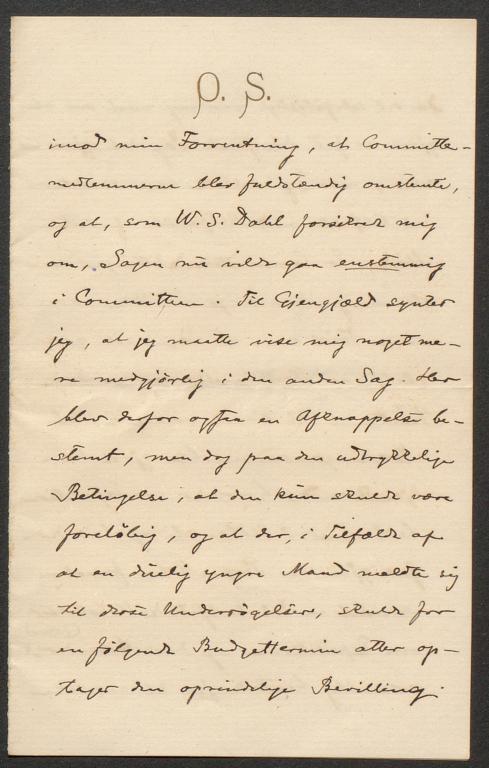 O. S.
imod min Forventning, at Committe-
medlemmerne blev fuldstændig omstemte,
og at, som W. S. Dahl forsikred mig
om, Sagen nu vilde gaa enstemmig
i Committeen. Til Gjengjæld synter
jeg, at jeg maatte vise mig noget me-
re medgjørlig i den anden Sag. Her
blev derfor ogsaa en Afknappelse be-
stemt, men dog paa den udtrykkelige
Betingelse, at den kun skulde være
foreløbig, og at der, i Tilfælde af
at en duelig yngre Mand meldte sig
til disse Undersøgelser, skulde for
en følgende Budgettermin atter op-
tages den oprindelige Bevilling.